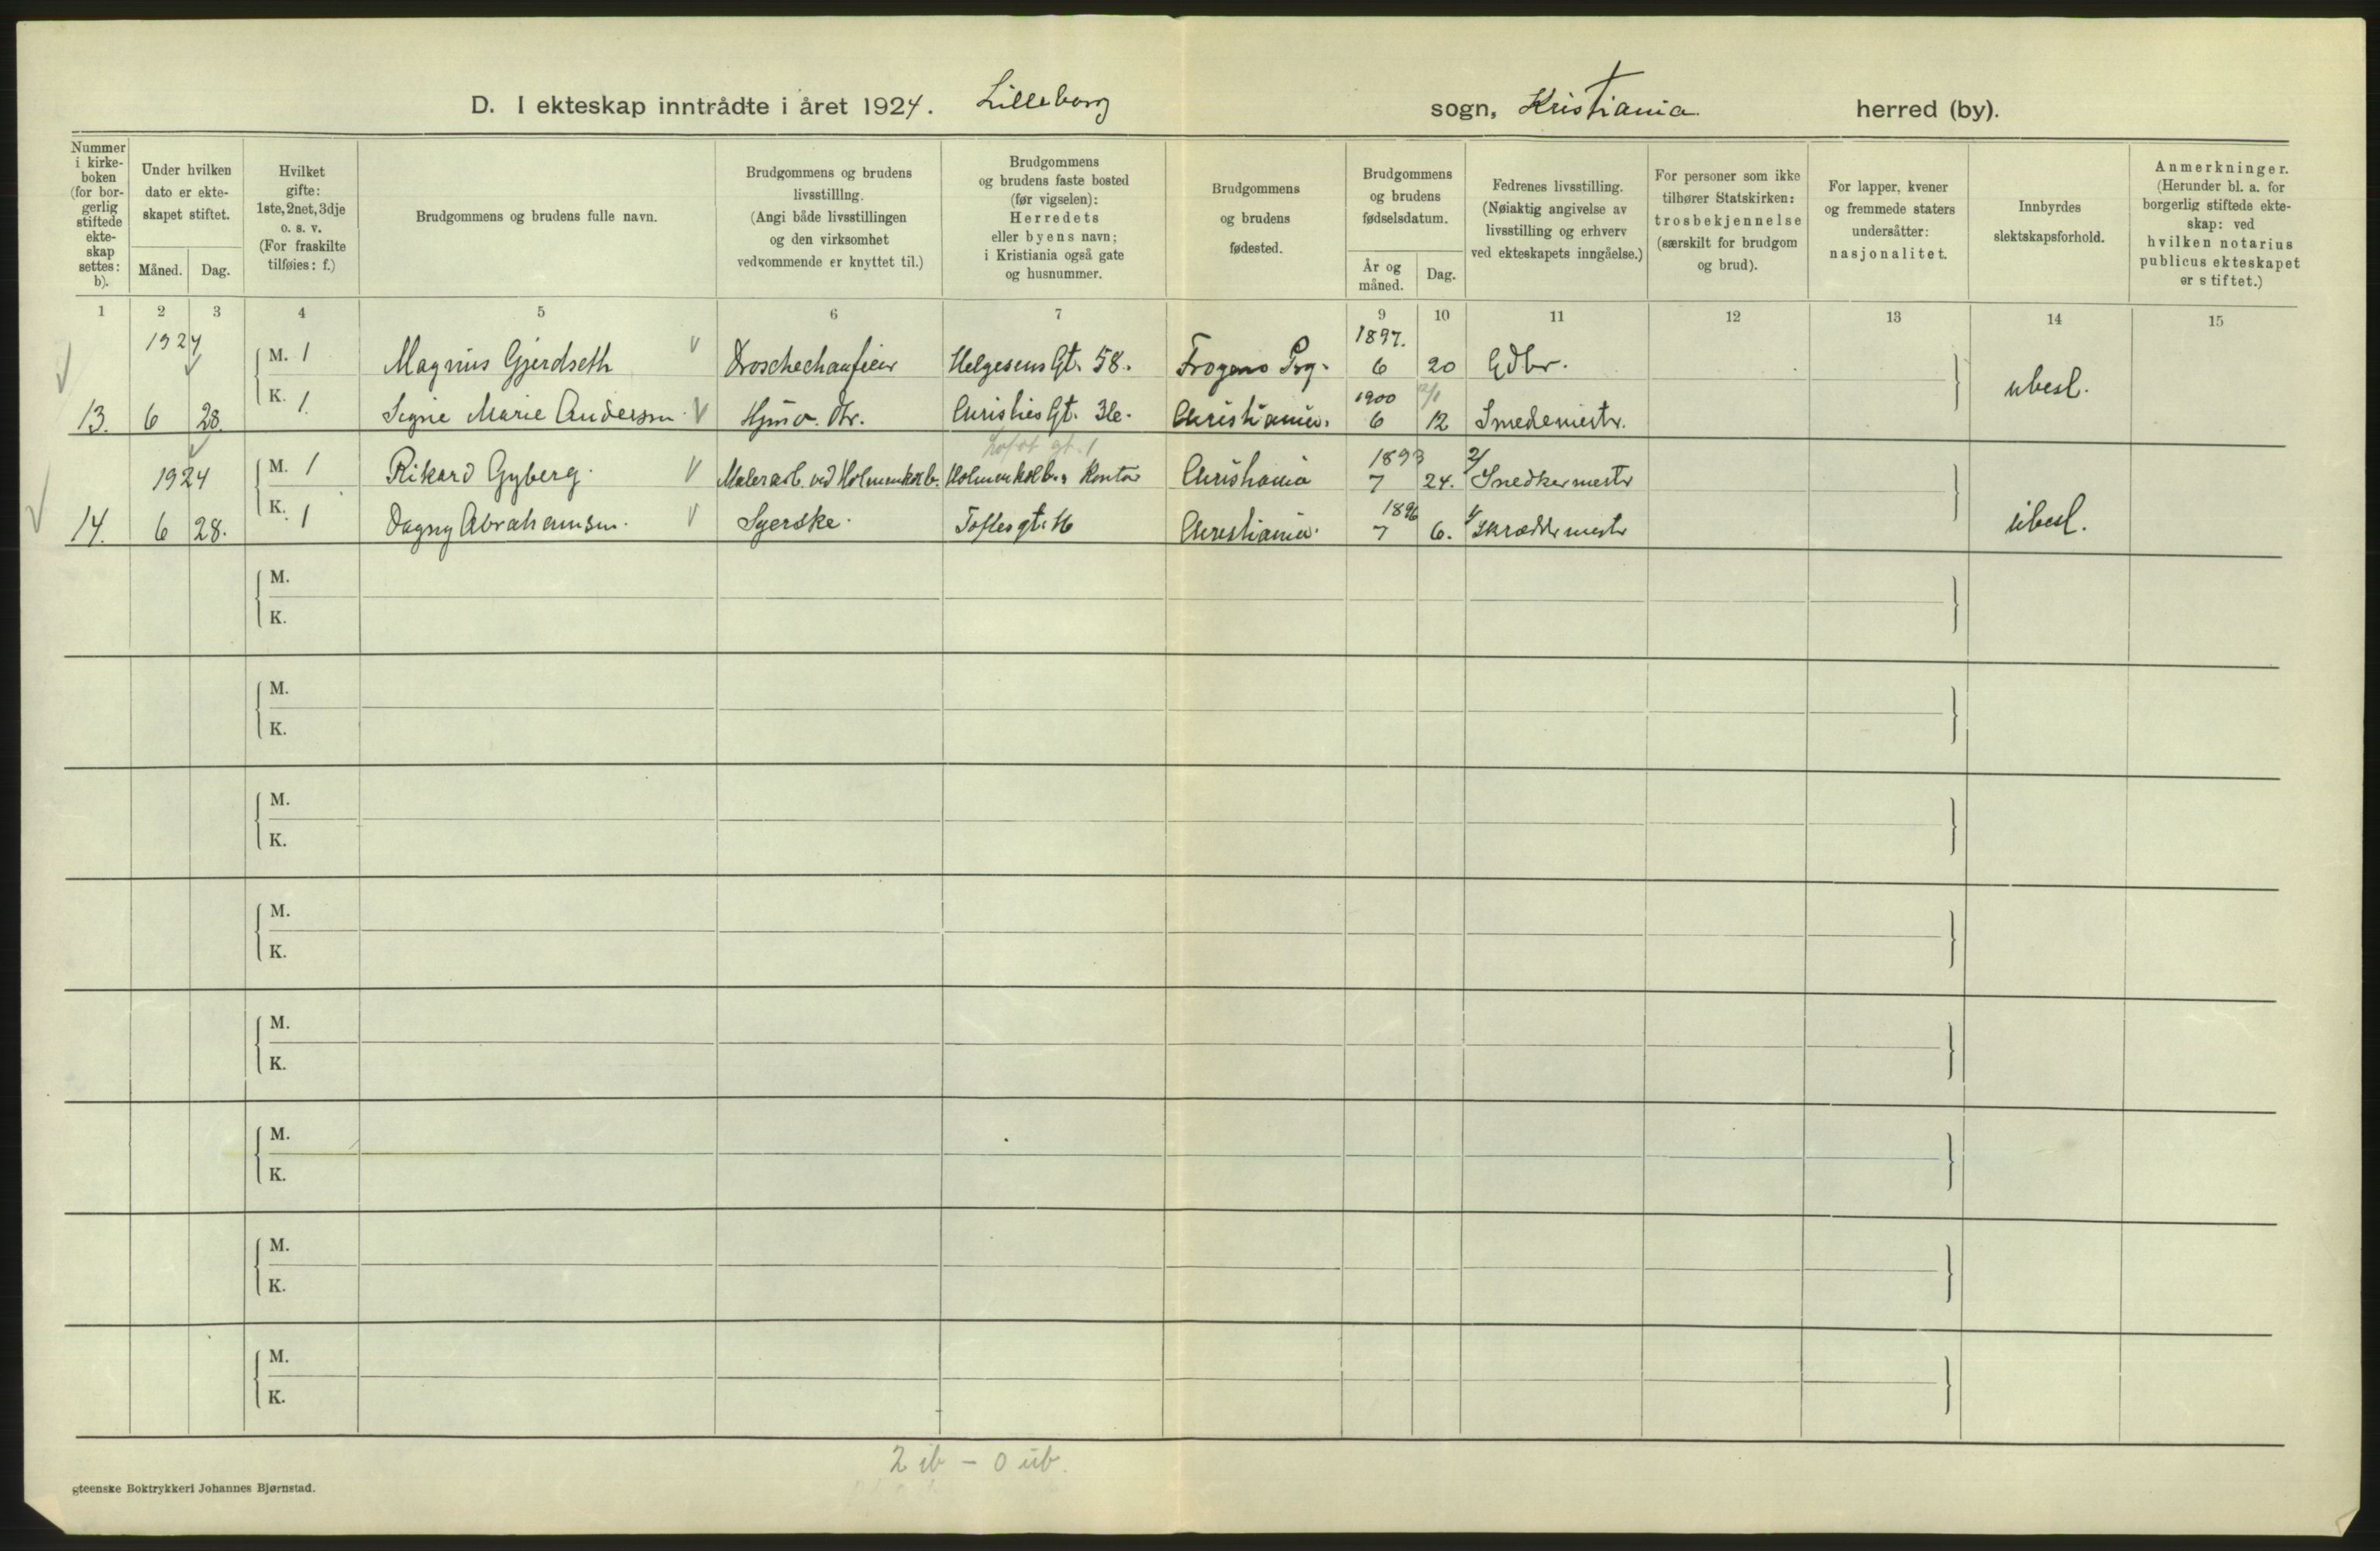 D. I ekteskap inntrådte i året 1924. Lilleborg sogn, Kristiania herred (by).
Nummer i kirke-boken (for bor-gerlig stiftede ekte-skap settes: b).
Under hvilken dato er ekte-skapet stiftet.
Måned. Dag.
Hvilket gifte: 1ste, 2net, 3dje o. s. v. (For fraskilte tilføies: f.)
Brudgommens og brudens fulle navn.
Brudgommens og brudens livsstilling. (Angi både livsstillingen og den virksomhet vedkommende er knyttet til.)
Brudgommens og brudens faste bosted (før vigselen): Herredets eller byens navn; i Kristiania også gate og husnummer.
Brudgommens og brudens fødested.
Brudgommens og brudens fødselsdatum.
År og måned. Dag.
Fedrenes livsstilling. (Nøiaktig angivelse av livsstilling og erhverv ved ekteskapets inngåelse.)
For personer som ikke tilhører Statskirken: trosbekjennelse (særskilt for brudgom og brud).
For lapper, kvener og fremmede staters undersåtter: nasjonalitet.
Innbyrdes slektskapsforhold.
Anmerkninger. (Herunder bl. a. for borgerlig stiftede ekte-skap: ved hvilken notarius publicus ekteskapet er stiftet.)
1 2 3 4 5 6 7 9 10 11 12 13 14 15
1924 1897.
M. 1 Magnus Gjerdseth Droschechauffeur Helgesens Gt. 58. Frogens Prg. 6 20 Gdbr.
ubesl.
1900 12/1
13. 6 28. K. 1. Signe Marie Andersen Hjm v. Christies Gt. Christiania. 6 12 Smedemestr.
Tofot gt. 1
1893
1924 M. 1 Rikard Gyberg. Malerarb. ved Holmenkolb. Holmenkolb.s Kontor Christiania 7 24. 2/ Snedkermestr
1896
14. 6 28. K. 1 Dagny Abrahamsen. Syerske. Toftesgt. 16 Christiania. 7 6. Skræddermestr
ubesl.
M.
K.
M.
K.
M.
K.
M.
K.
M.
K.
M.
K.
M.
K.
M.
K.
2 ib - 0 ub.
gteenske Boktrykkeri Johannes Bjørnstad.